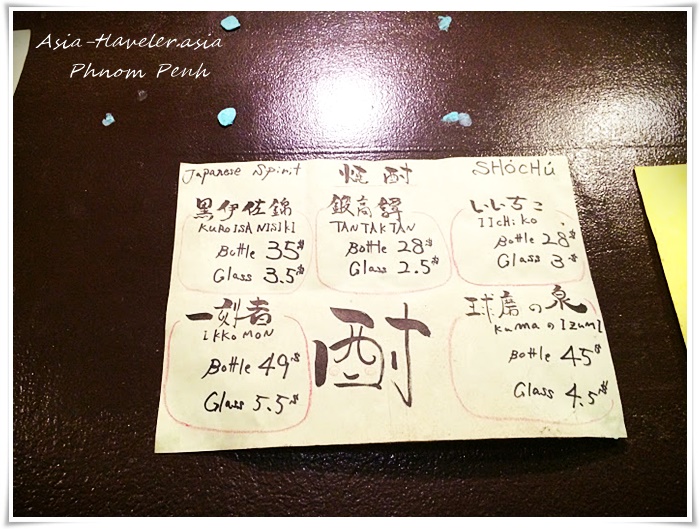 Asia-traveler.asia
Phnom Penh
Japanese Spirit 焼酎 SHōCHū
黒伊佐錦
KUROISANISIKI
Bottle 35$
Glass 3.5$
鍛高譚
TANTAKTAN
Bottle 28$
Glass 2.5$
いいちこ
IICHiKO
Bottle 28$
Glass 3$
一刻者
IKKOMON
Bottle 49$
Glass 5.5$
酎
球磨の泉
KumaのIZUMI
Bottle 45$
Glass 4.5$